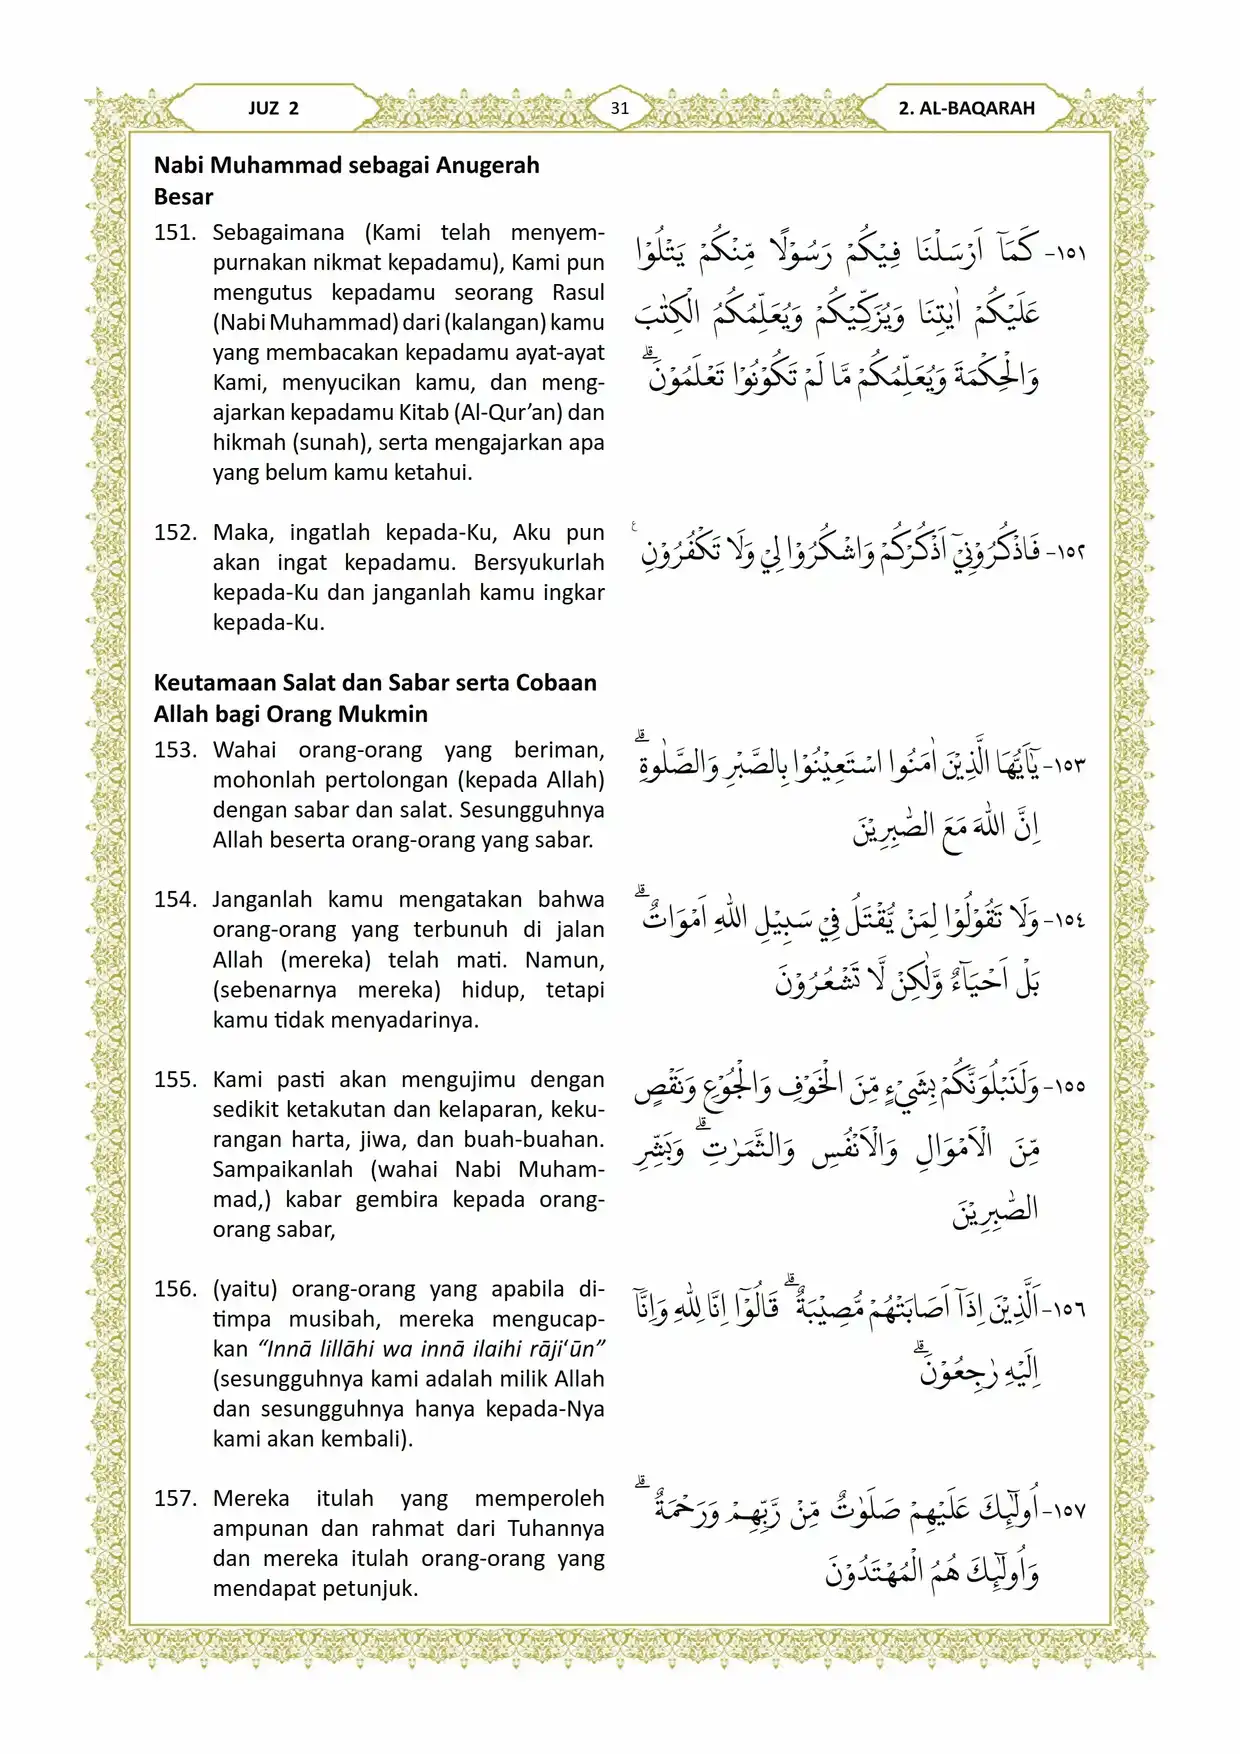 JUZ 2
31
2. AL-BAQARAH
Nabi Muhammad sebagai Anugerah
Besar
151. Sebagaimana (Kami telah menyem-
purnakan nikmat kepadamu), Kami pun
mengutus kepadamu seorang Rasul
(Nabi Muhammad) dari (kalangan) kamu
yang membacakan kepadamu ayat-ayat
Kami, menyucikan kamu, dan meng-
ajarkan kepadamu Kitab (Al-Qur’an) dan
hikmah (sunah), serta mengajarkan apa
yang belum kamu ketahui.
١٥١- كَمَآ اَرْسَلْنَا فِيْكُمْ رَسُوْلًا مِّنْكُمْ يَتْلُوْا
عَلَيْكُمْ اٰيٰتِنَا وَيُزَكِّيْكُمْ وَيُعَلِّمُكُمُ الْكِتٰبَ
وَالْحِكْمَةَ وَيُعَلِّمُكُمْ مَّا لَمْ تَكُوْنُوْا تَعْلَمُوْنَۗ
152. Maka, ingatlah kepada-Ku, Aku pun
akan ingat kepadamu. Bersyukurlah
kepada-Ku dan janganlah kamu ingkar
kepada-Ku.
١٥٢- فَاذْكُرُوْنِيْٓ اَذْكُرْكُمْ وَاشْكُرُوْا لِيْ وَلَا تَكْفُرُوْنِ ࣖ
Keutamaan Salat dan Sabar serta Cobaan
Allah bagi Orang Mukmin
153. Wahai orang-orang yang beriman,
mohonlah pertolongan (kepada Allah)
dengan sabar dan salat. Sesungguhnya
Allah beserta orang-orang yang sabar.
١٥٣- يٰٓاَيُّهَا الَّذِيْنَ اٰمَنُوا اسْتَعِيْنُوْا بِالصَّبْرِ وَالصَّلٰوةِۗ
اِنَّ اللّٰهَ مَعَ الصّٰبِرِيْنَ
154. Janganlah kamu mengatakan bahwa
orang-orang yang terbunuh di jalan
Allah (mereka) telah mati. Namun,
(sebenarnya mereka) hidup, tetapi
kamu tidak menyadarinya.
١٥٤- وَلَا تَقُوْلُوْا لِمَنْ يُّقْتَلُ فِيْ سَبِيْلِ اللّٰهِ اَمْوَاتٌۗ
بَلْ اَحْيَاۤءٌ وَّلٰكِنْ لَّا تَشْعُرُوْنَ
155. Kami pasti akan mengujimu dengan
sedikit ketakutan dan kelaparan, keku-
rangan harta, jiwa, dan buah-buahan.
Sampaikanlah (wahai Nabi Muham-
mad,) kabar gembira kepada orang-
orang sabar,
١٥٥- وَلَنَبْلُوَنَّكُمْ بِشَيْءٍ مِّنَ الْخَوْفِ وَالْجُوْعِ وَنَقْصٍ
مِّنَ الْاَمْوَالِ وَالْاَنْفُسِ وَالثَّمَرٰتِۗ وَبَشِّرِ
الصّٰبِرِيْنَ
156. (yaitu) orang-orang yang apabila di-
timpa musibah, mereka mengucap-
kan “Innā lillāhi wa innā ilaihi rāji‘ūn”
(sesungguhnya kami adalah milik Allah
dan sesungguhnya hanya kepada-Nya
kami akan kembali).
١٥٦- اَلَّذِيْنَ اِذَآ اَصَابَتْهُمْ مُّصِيْبَةٌۗ قَالُوْٓا اِنَّا لِلّٰهِ وَاِنَّآ
اِلَيْهِ رٰجِعُوْنَۗ
157. Mereka itulah yang memperoleh
ampunan dan rahmat dari Tuhannya
dan mereka itulah orang-orang yang
mendapat petunjuk.
١٥٧- اُولٰۤىِٕكَ عَلَيْهِمْ صَلَوٰتٌ مِّنْ رَّبِّهِمْ وَرَحْمَةٌۗ
وَاُولٰۤىِٕكَ هُمُ الْمُهْتَدُوْنَ